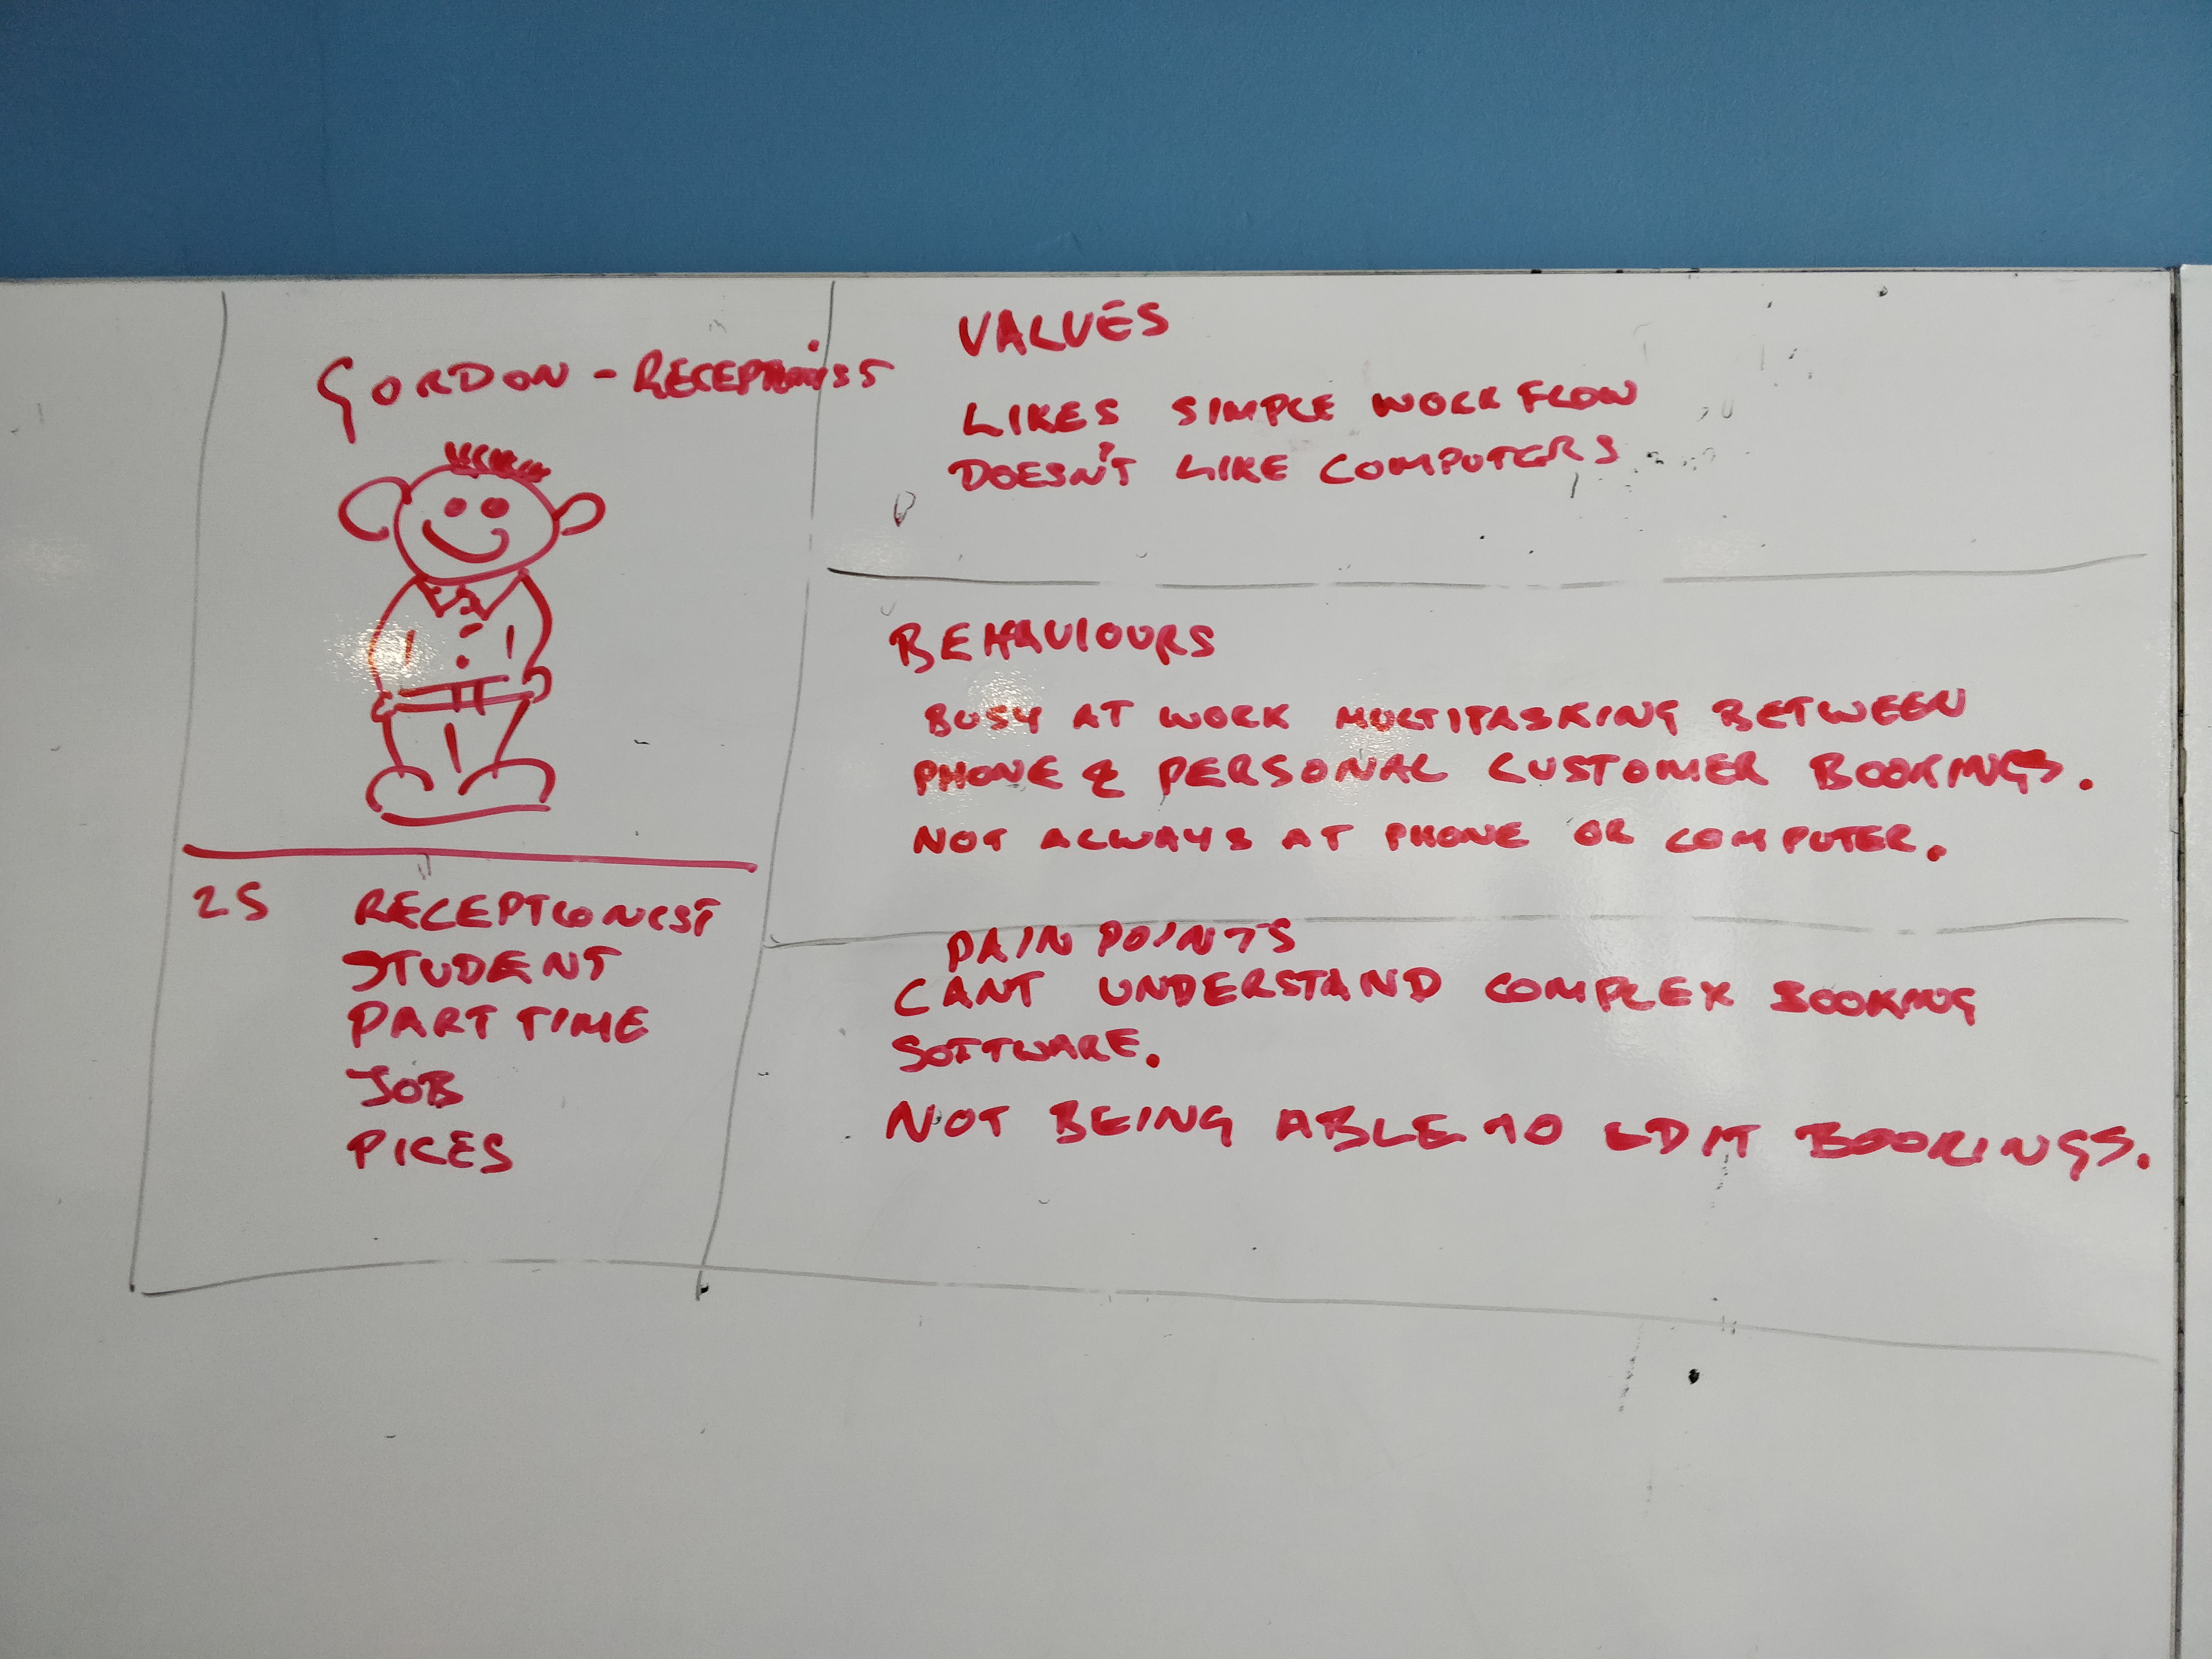 GORDON - RECEPTIONIST
25 RECEPTIONIST
STUDENT
PART TIME
JOB
VALUES
LIKES SIMPLE WORKFLOW
DOESN'T LIKE COMPUTERS
BEHAVIOURS
BUSY AT WORK MULTITASKING BETWEEN
PHONE & PERSONAL CUSTOMER BOOKINGS.
NOT ALWAYS AT PHONE OR COMPUTER.
PAIN POINTS
CANT UNDERSTAND COMPLEX BOOKING
SOFTWARE.
NOT BEING ABLE TO EDIT BOOKINGS.